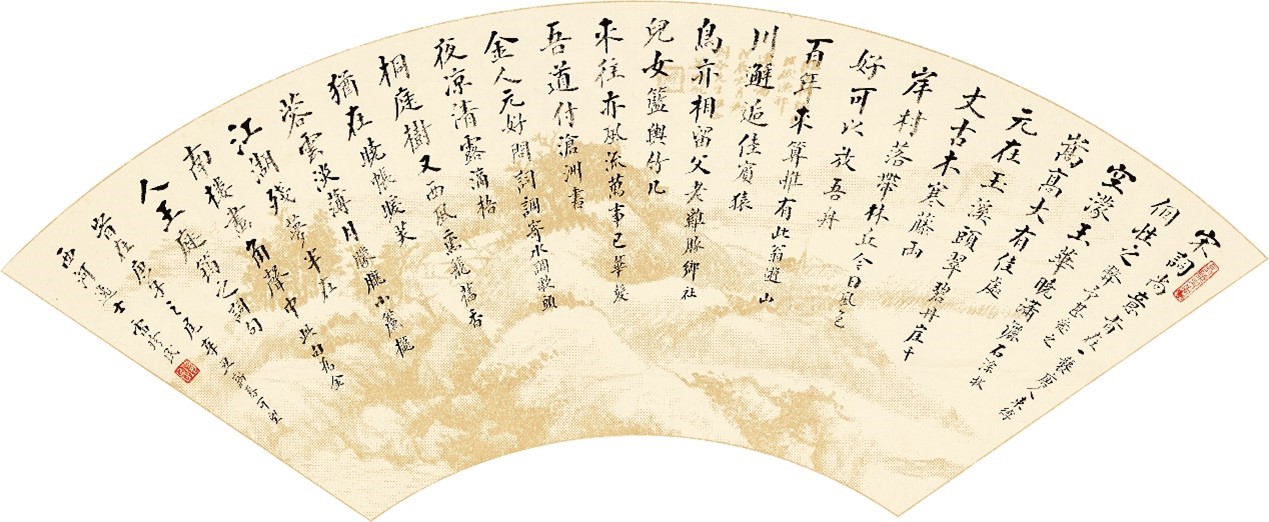 宋詞尚意者在一襲唐人未得
個性之解予甚愛之
空濛玉華曉瀟灑石淙秋
嵩高大有佳處
元在玉溪頭翠碧丹崖千
丈古木寒藤兩
岸村落帶林丘今日風色
好可以放吾舟
百年來算惟有此翁遊山
川邂逅佳賓猿
鳥亦相留父老雞豚鄉社
兒女籃輿竹几
來往亦風流萬事已華髮
吾道付滄洲書
金人元好問詞調寄水調歌頭
夜涼清露滴梧
桐庭樹又西風薰籠舊香
猶在曉帳暖芙
蓉雲淡薄月朦朧小簾櫳
江湖殘夢半在
南樓畫角聲中此句為金
人王庭筠之詞句
時在庚子之尾辛丑新春可望
西河逸士雷珍民